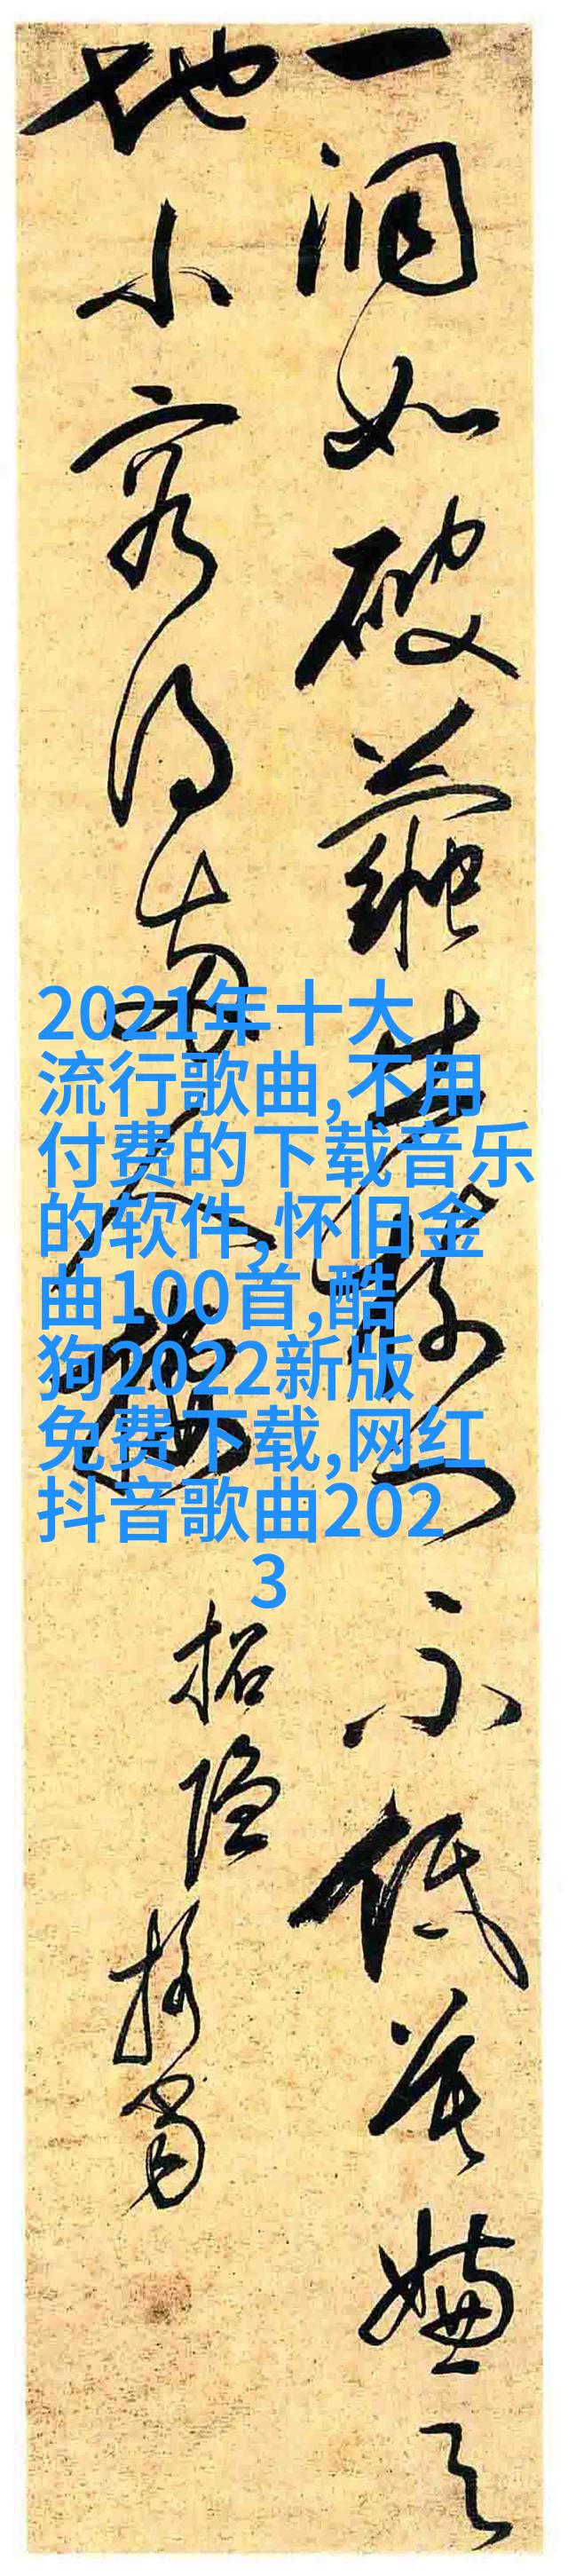 一洞如破繭出門不低莫嫌天
地小容得兩人棲
招隱
2021年十大
流行歌曲,不用
付费的下载音乐
的软件,怀旧金
曲100首,酷
狗2022新版
免费下载,网红
抖音歌曲202
3